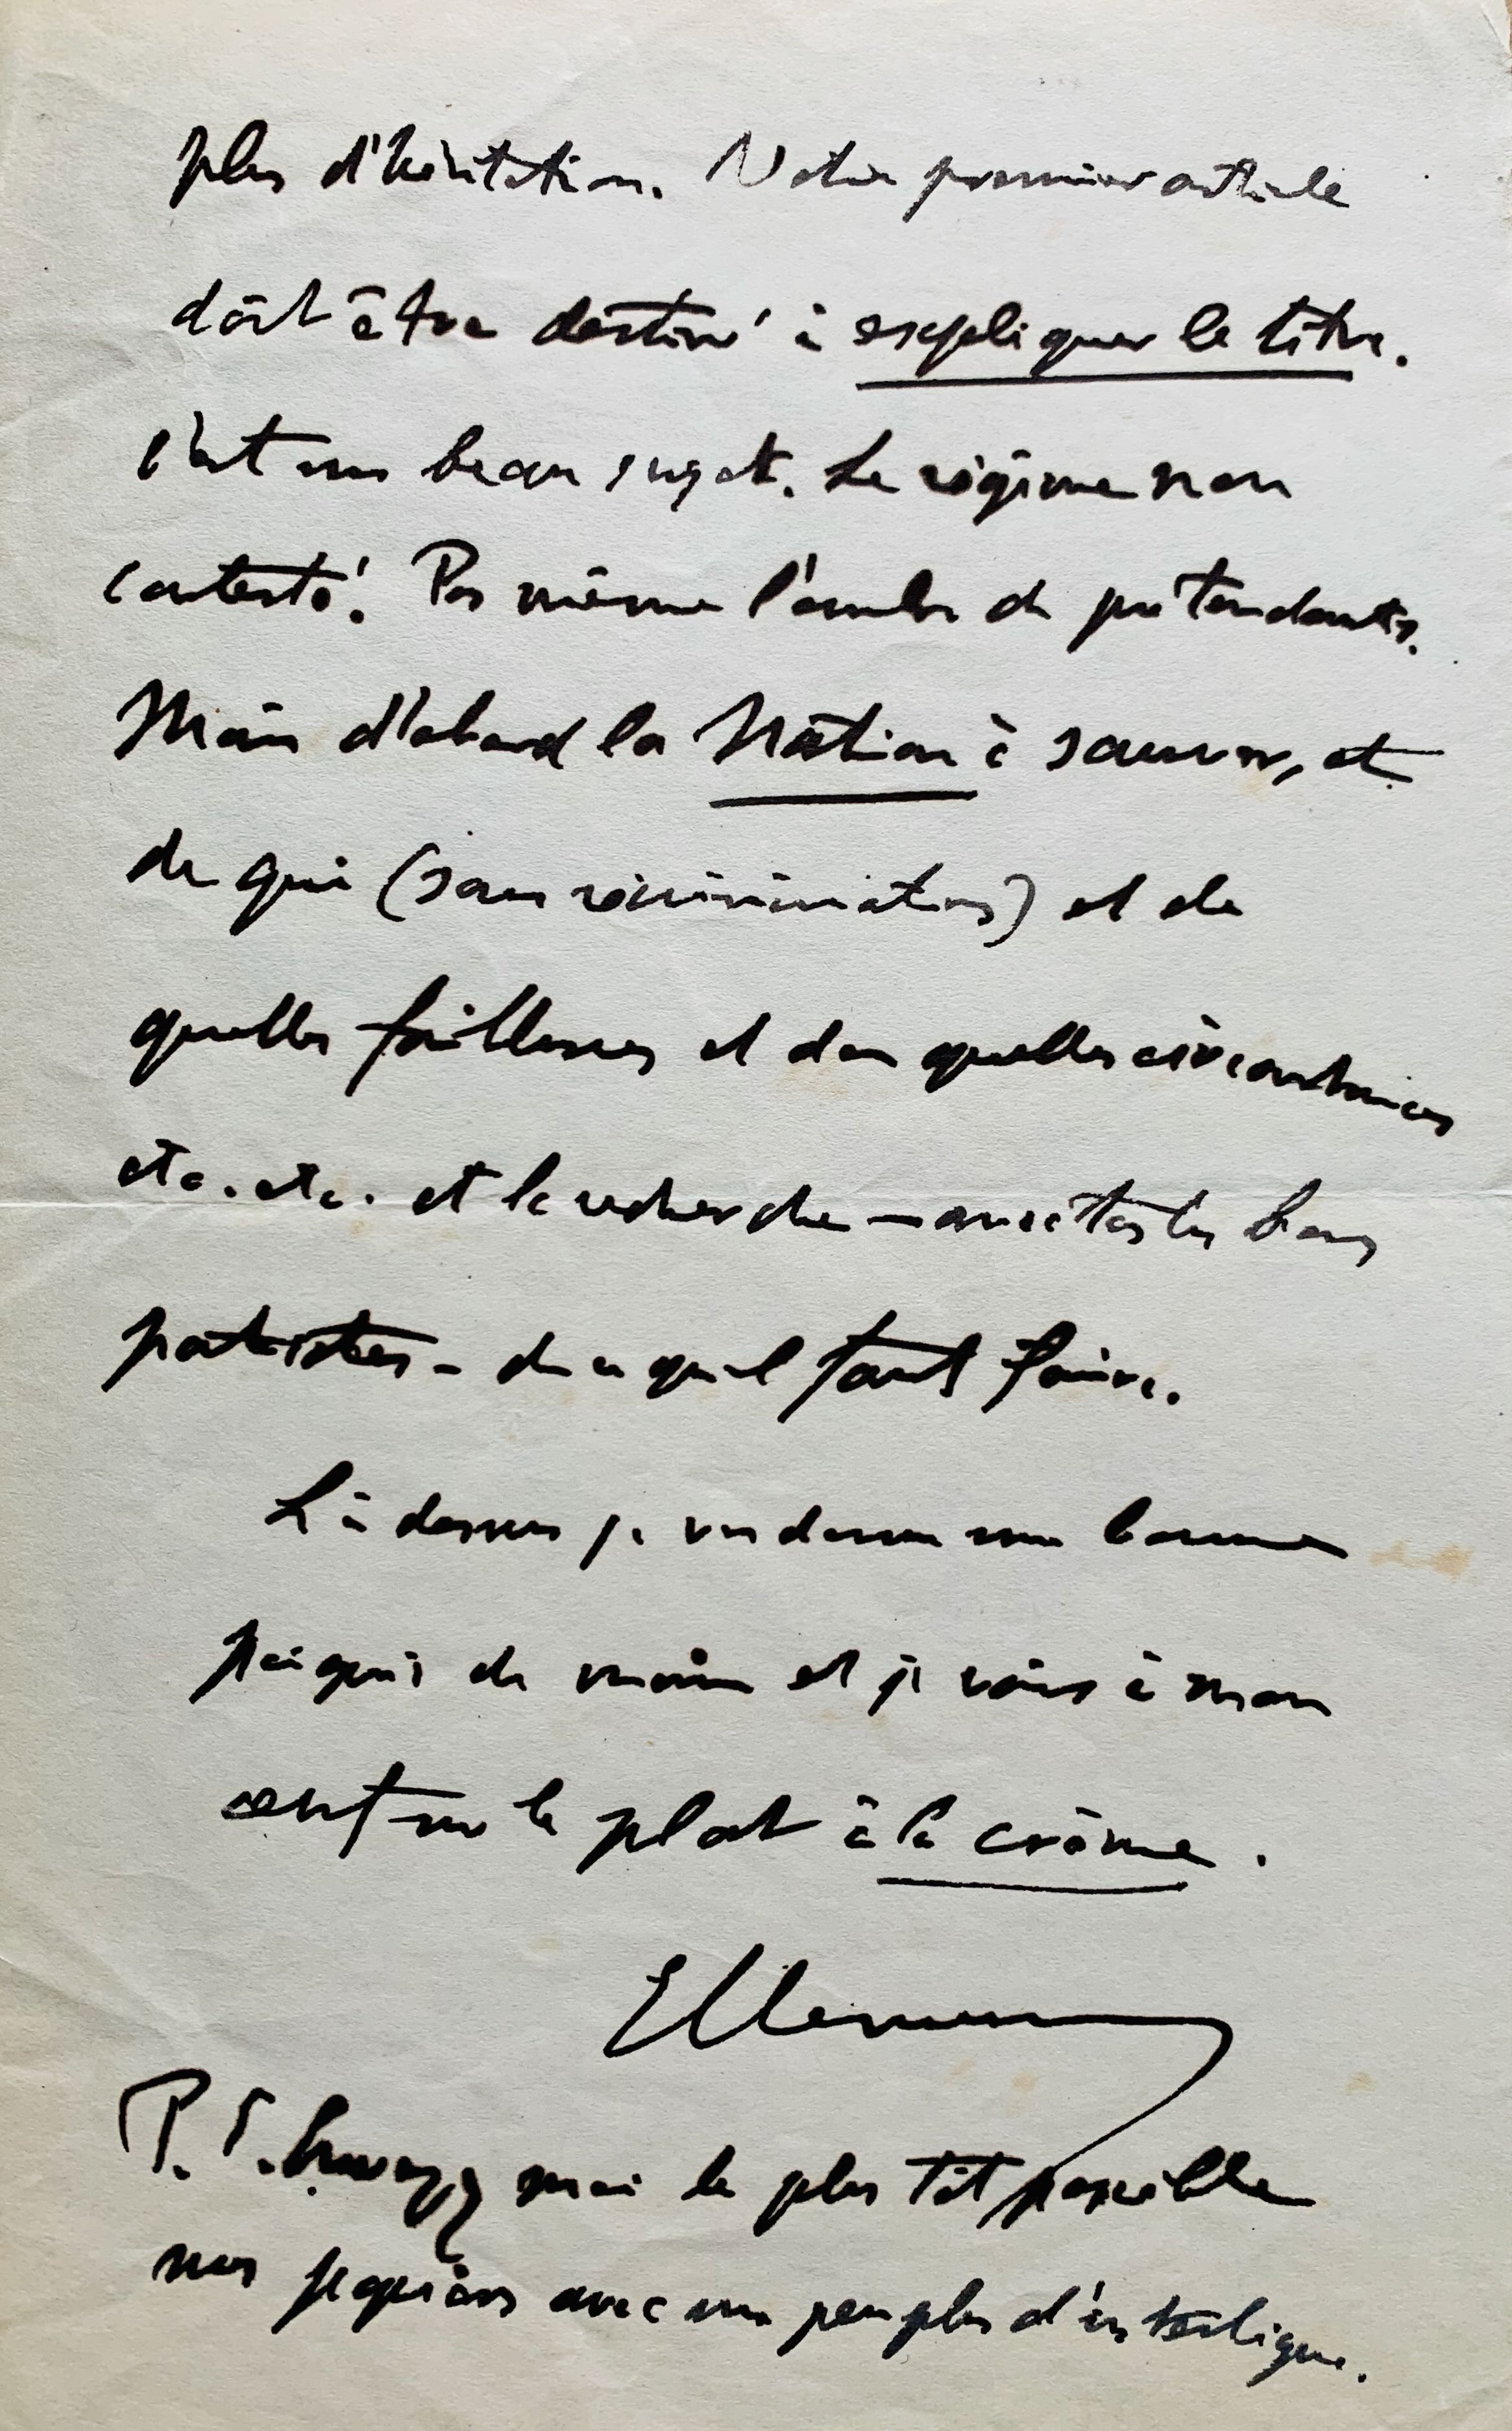 plus d'hésitation. Notre premier article
doit être destiné à expliquer le titre.
C'est un beau sujet. Le régime non
contesté. Pas même l'ombre de prétendants.
Mais d'abord la Nation à sauver, et
de qui (sans récriminations) et de
quelles faiblesses et de quelles circonstances
etc. etc. et la recherche — avec ts les bons
patriotes — de ce qu'il faut faire.
Là dessus je vs donne une bonne
poignée de main et je vais à mon
œuf sur le plat à la crème.
P.S. Envoyez moi le plus tôt possible
mes papiers avec un peu plus d'interligne.